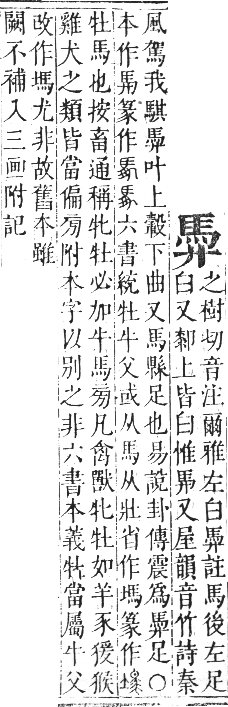 馵之樹切音注爾雅左白馵註馬後左足
白又䣛上皆白惟馵又屋韻音竹詩秦
風駕我騏馵叶上轂下曲又馬縣足也易說卦傳震爲馵足〇
本作馵篆作六書統牡牛父或从馬从壯省作篆作
牡馬也按畜通稱牝牡必加牛馬旁凡禽獸牝牡如羊豕猨猴
雞犬之類皆當偏旁附本字以別之非六書本義牡當屬牛父
改作尤非故舊本雖
闕不補入三画附記